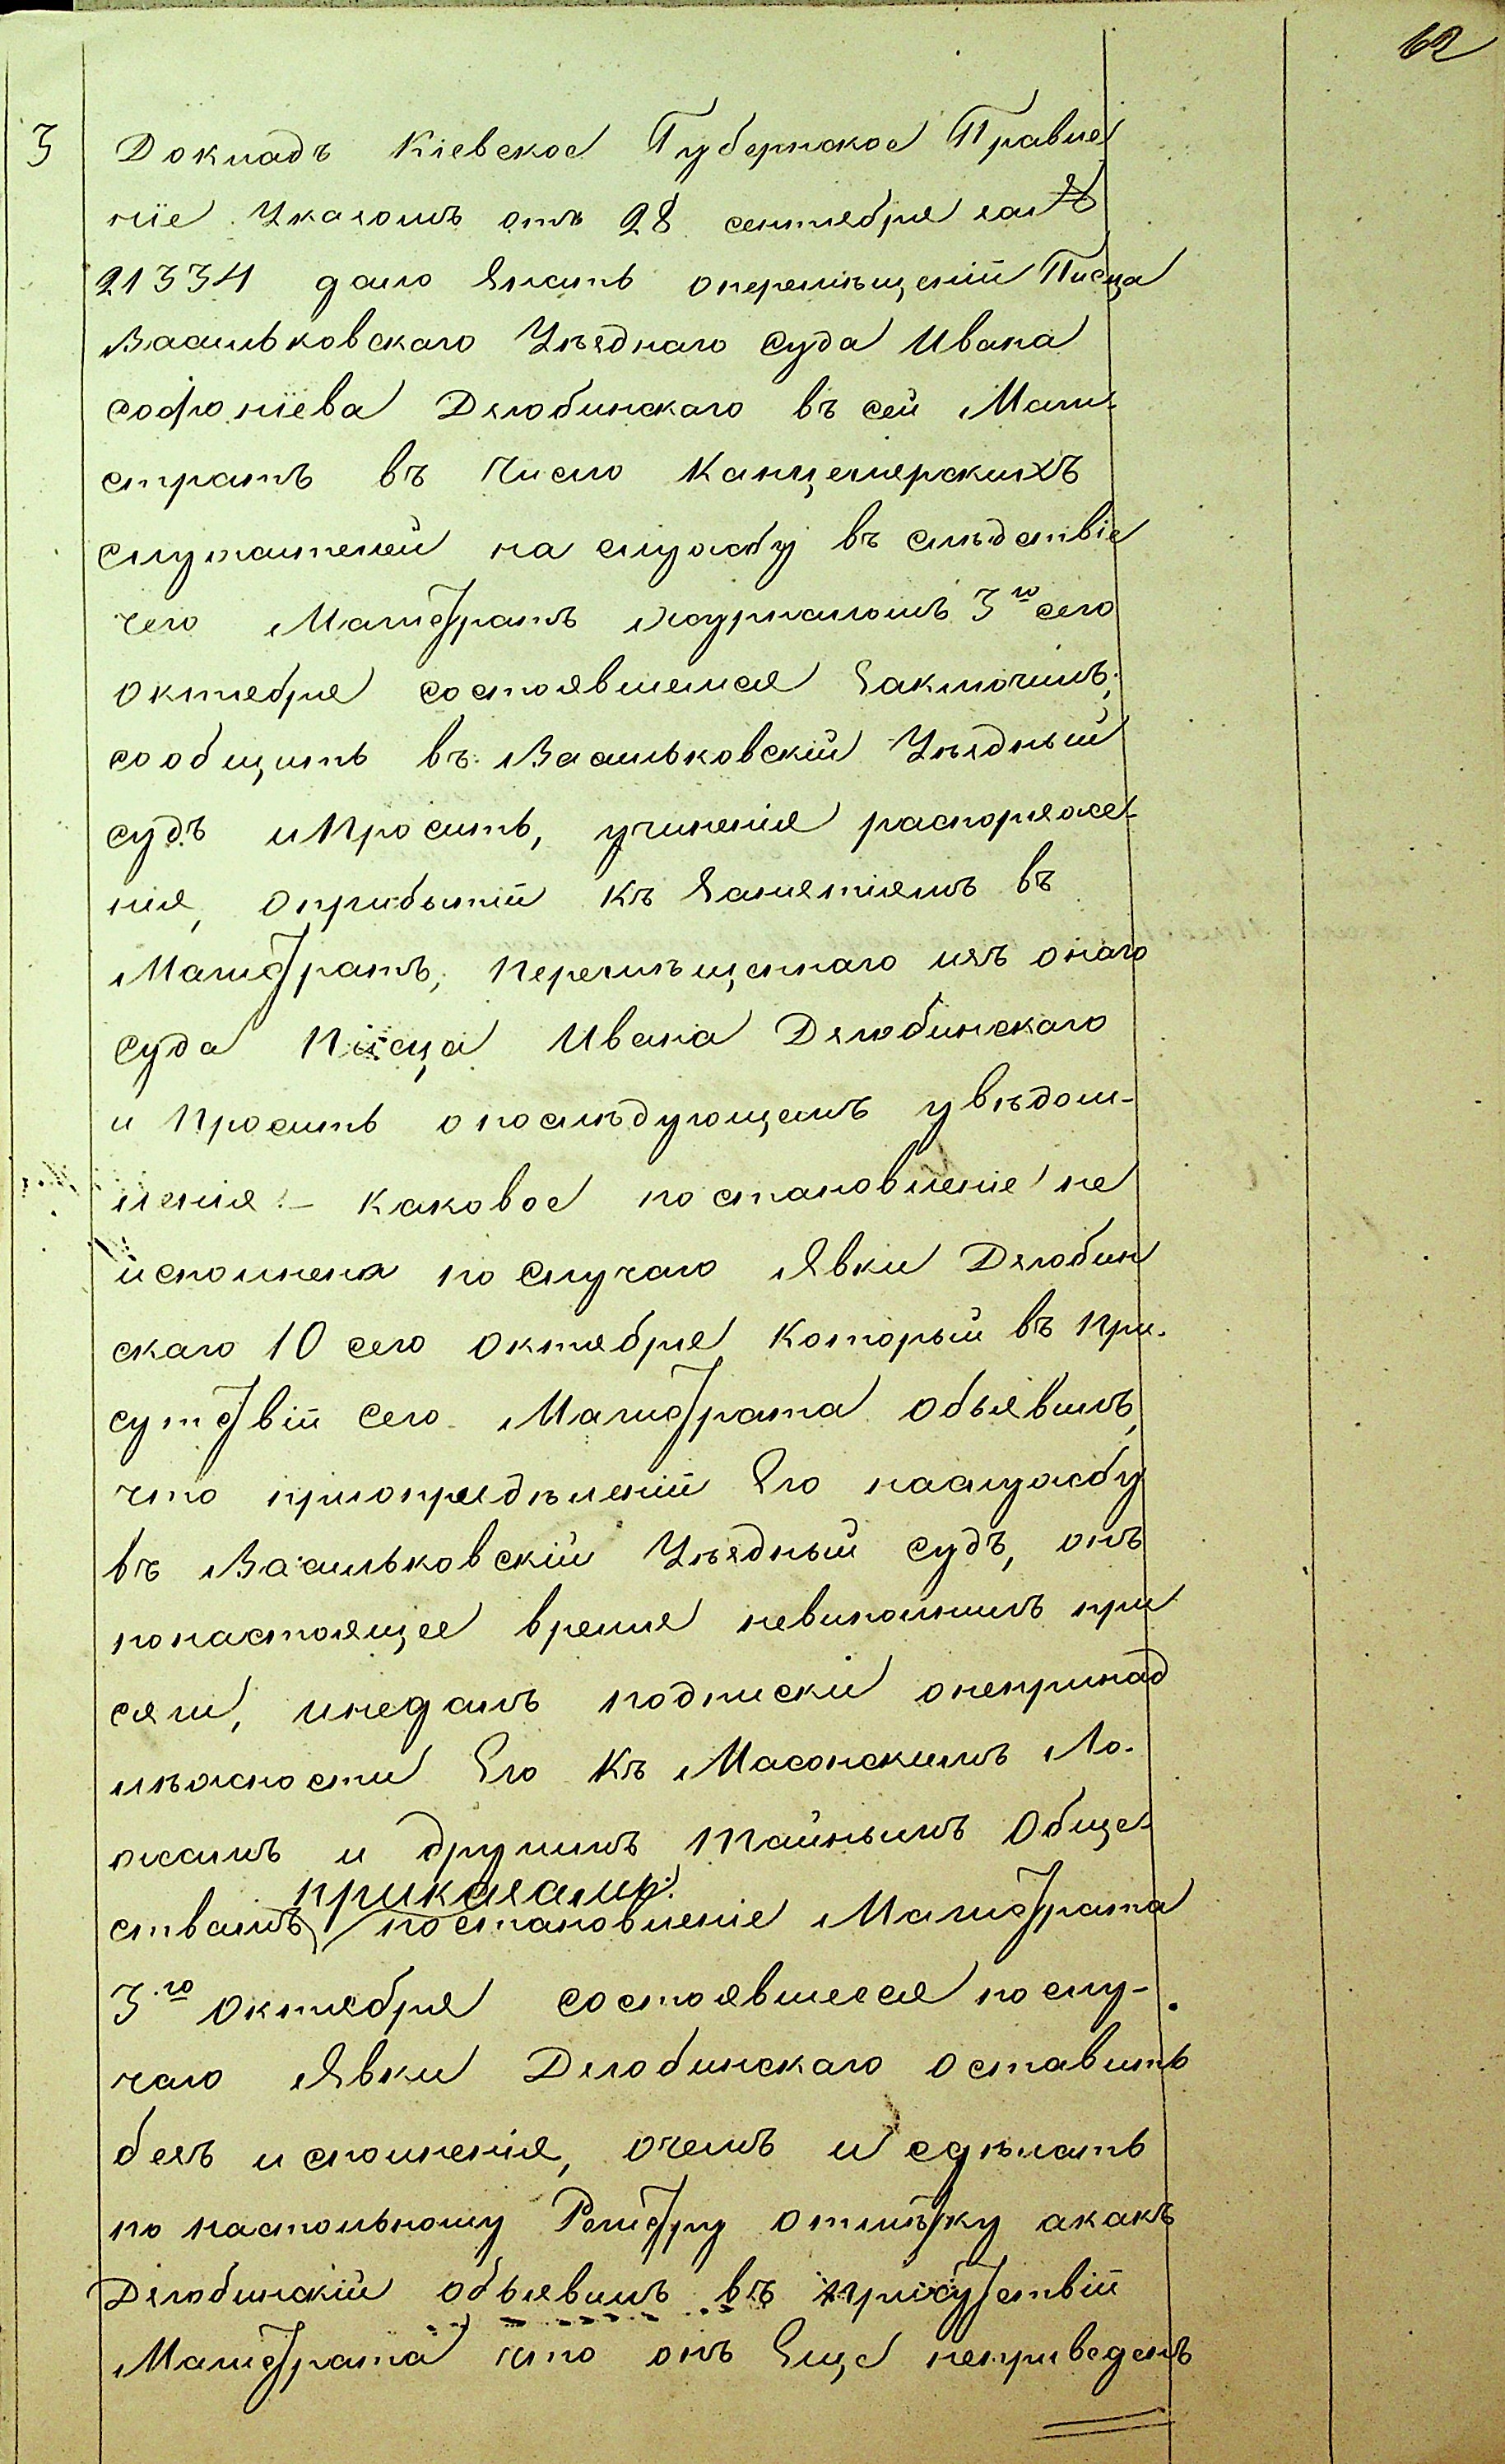 62
3 Докладъ Кіевское Губернское Правле
ніе Указомъ отъ 28 сентября за №
21334 дало знать оперемѣщеніи Писца
Васильковскаго Уѣзднаго Суда Ивана
софоніева Дзюбинскаго въ сей Маги-
стратъ въ число Канцелярскихъ
служителей на службу въ слѣдствіе
чего Магистратъ журналомъ 3го сего
октебря состоявшемся Заключилъ;
сообщить въ Васильковскій Уѣздный
судъ иПросить, учиненія распоряже-
нія, оприбытіи къ Занятіямъ въ
Магистратъ, Перемѣщеннаго изъ онаго
Суда Писца Ивана Дзюбинскаго
и Просить опослѣдующемъ увѣдом-
ленія:- каковое постановленіе не
исполнена по Случаю Явки Дзюбин
скаго 10 сего Октября Который въ При-
сутствіи Сего Магистрата Объявилъ,
что приопредѣленіи Его наслужбу
въ Васильковскій Уѣздный Судъ, онъ
понастоящее время невиполнилъ при
сяги, инедалъ подписки онепринад
лѣжности Его Къ Масонскимъ Ло-
жамъ и другимъ Тайнымъ Обще-
приказали:
ствамъ, постановленіе Магистрата
3го Октября состоявшееся по слу-
чаю Явки Дзюбинскаго Оставить
безъ исполненія, очемъ и сдѣлать
по настольному Регистру Отмѣтку акакъ
Дзюбинскій Объявилъ въ присутствіи
Магистрата что онъ Еще неприведенъ